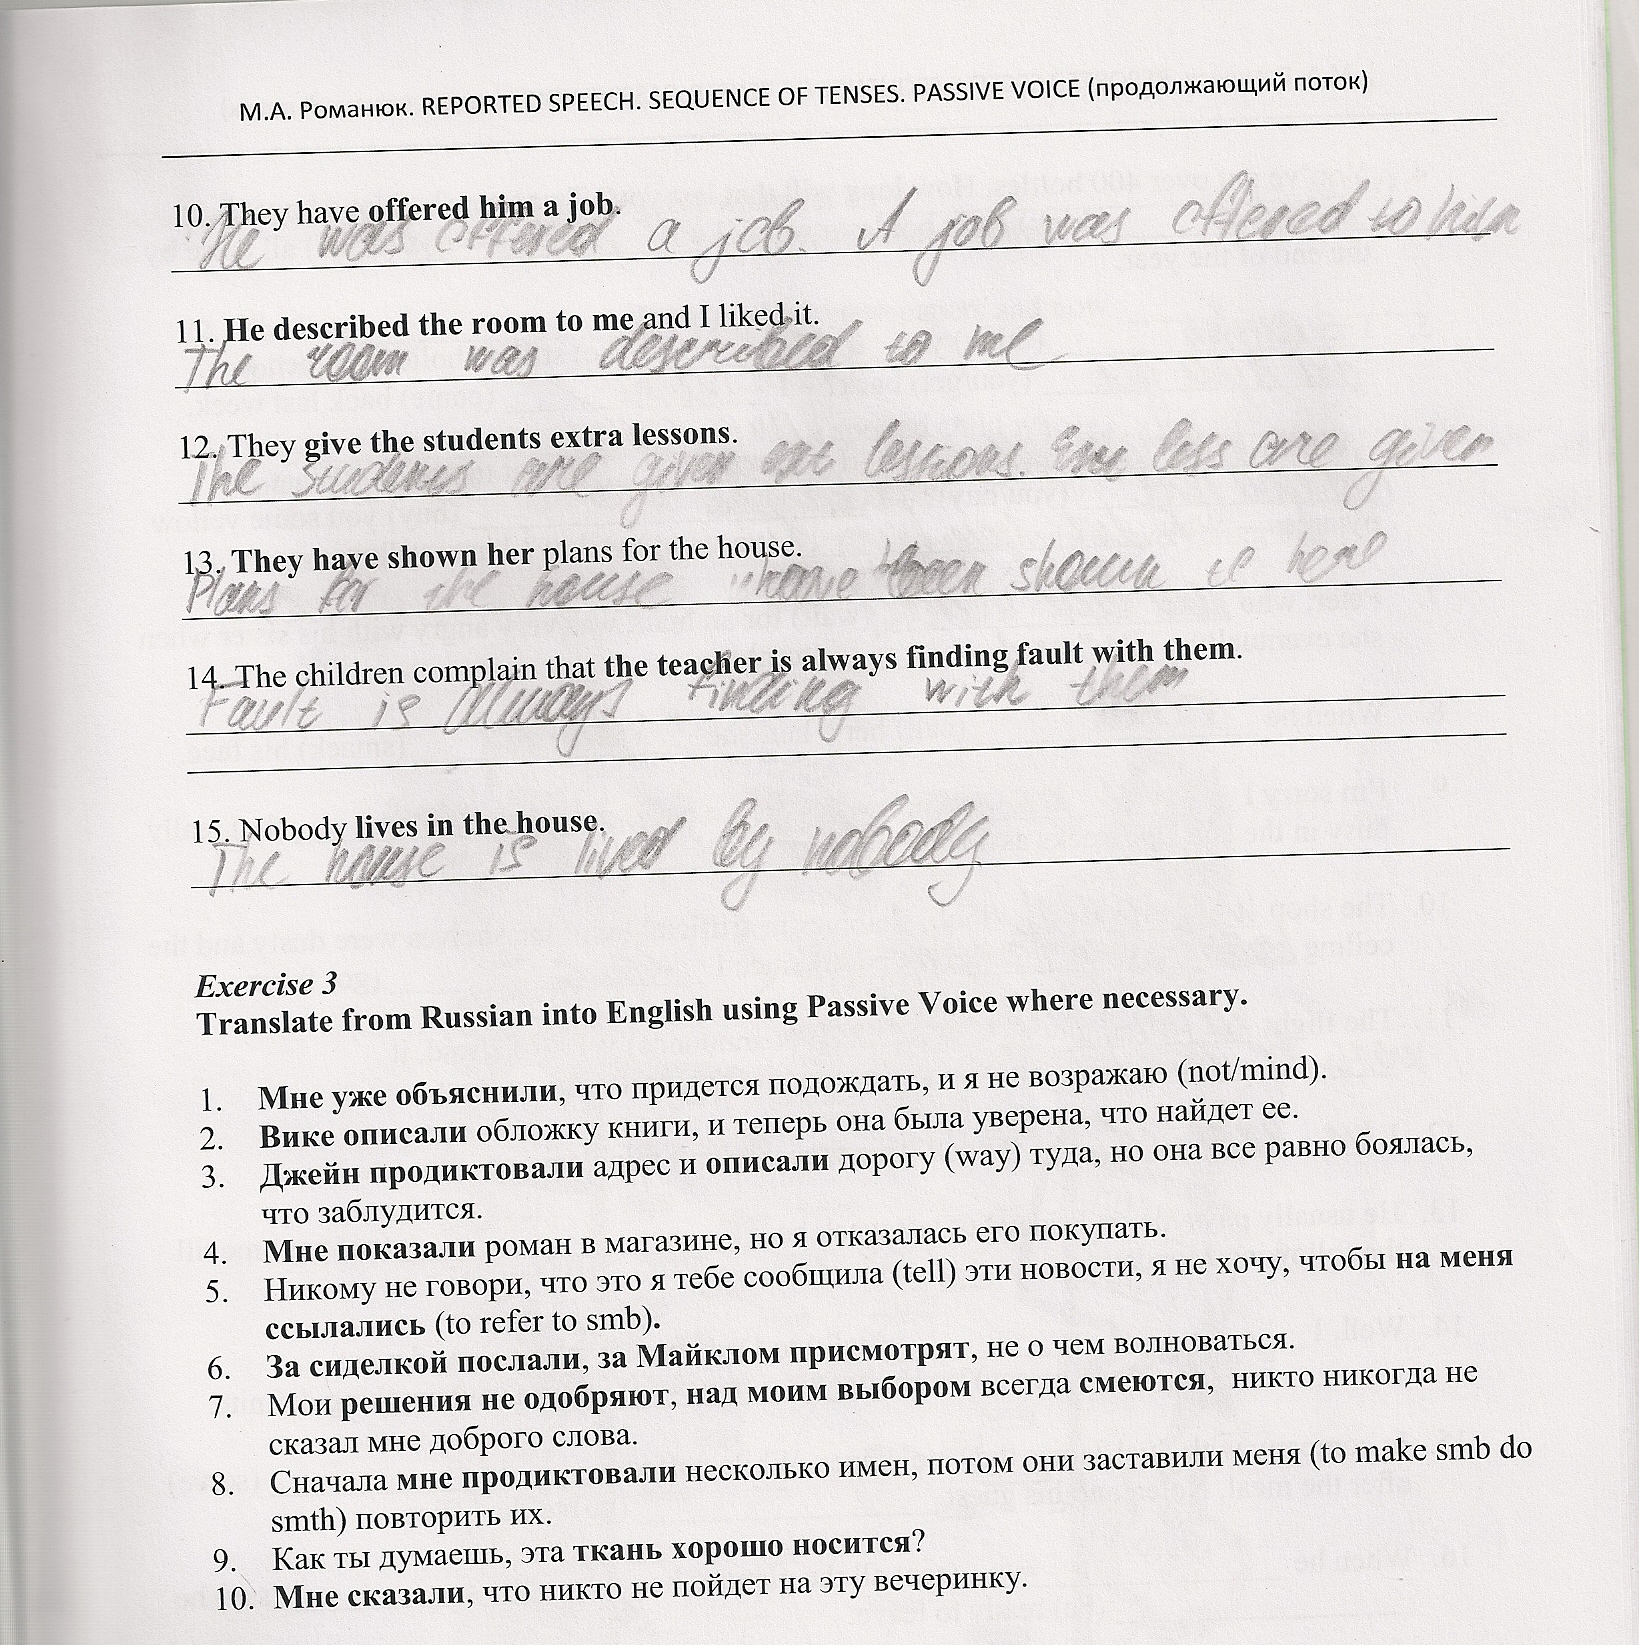 М.А. Романюк. REPORTED SPEECH. SEQUENCE OF TENSES. PASSIVE VOICE (продолжающий поток)
10. They have offered him a job.
He was offered a job. A job was offered to him
11. He described the room to me and I liked it.
The room was described to me
12. They give the students extra lessons.
The students are given lessons. less are given
13. They have shown her plans for the house.
Plans for the house have been shown
14. The children complain that the teacher is always finding fault with them.
Fault is always finding with them
15. Nobody lives in the house.
The house is lived by nobody
Exercise 3
Translate from Russian into English using Passive Voice where necessary.
1. Мне уже объяснили, что придется подождать, и я не возражаю (not/mind).
2. Вике описали обложку книги, и теперь она была уверена, что найдет ее.
3. Джейн продиктовали адрес и описали дорогу (way) туда, но она все равно боялась,
что заблудится.
4. Мне показали роман в магазине, но я отказалась его покупать.
5. Никому не говори, что это я тебе сообщила (tell) эти новости, я не хочу, чтобы на меня
ссылались (to refer to smb).
6. За сиделкой послали, за Майклом присмотрят, не о чем волноваться.
7. Мои решения не одобряют, над моим выбором всегда смеются, никто никогда не
сказал мне доброго слова.
8. Сначала мне продиктовали несколько имен, потом они заставили меня (to make smb do
smth) повторить их.
9. Как ты думаешь, эта ткань хорошо носится?
10. Мне сказали, что никто не пойдет на эту вечеринку.